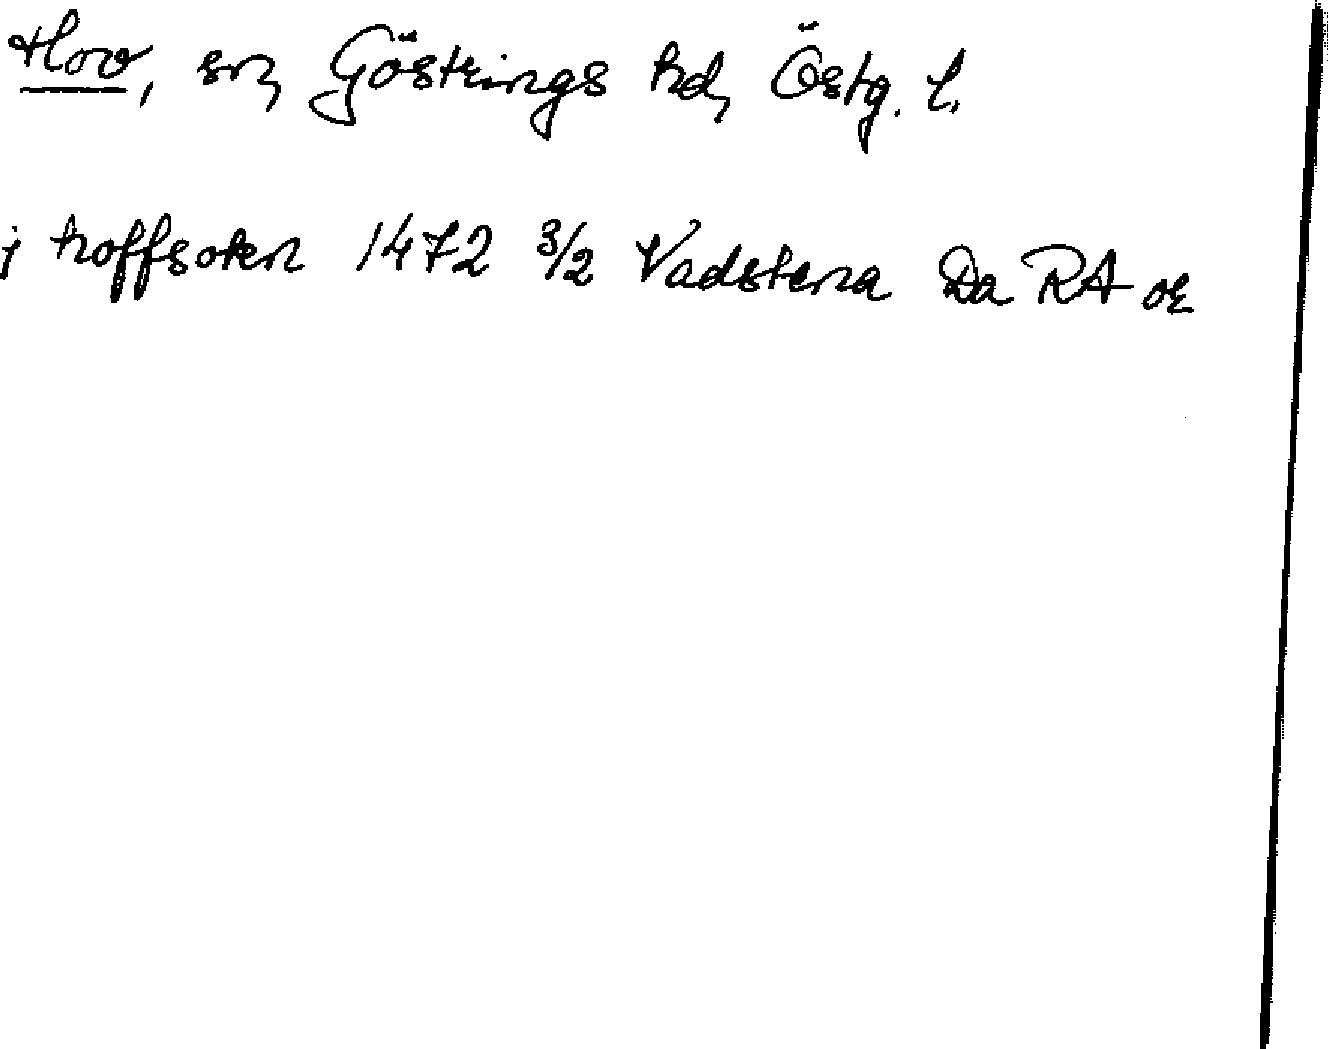 Hov, sn, Göstrings hd, Östg. l.
j hoffsoken 1472 3/2 Vadstena Da RA or